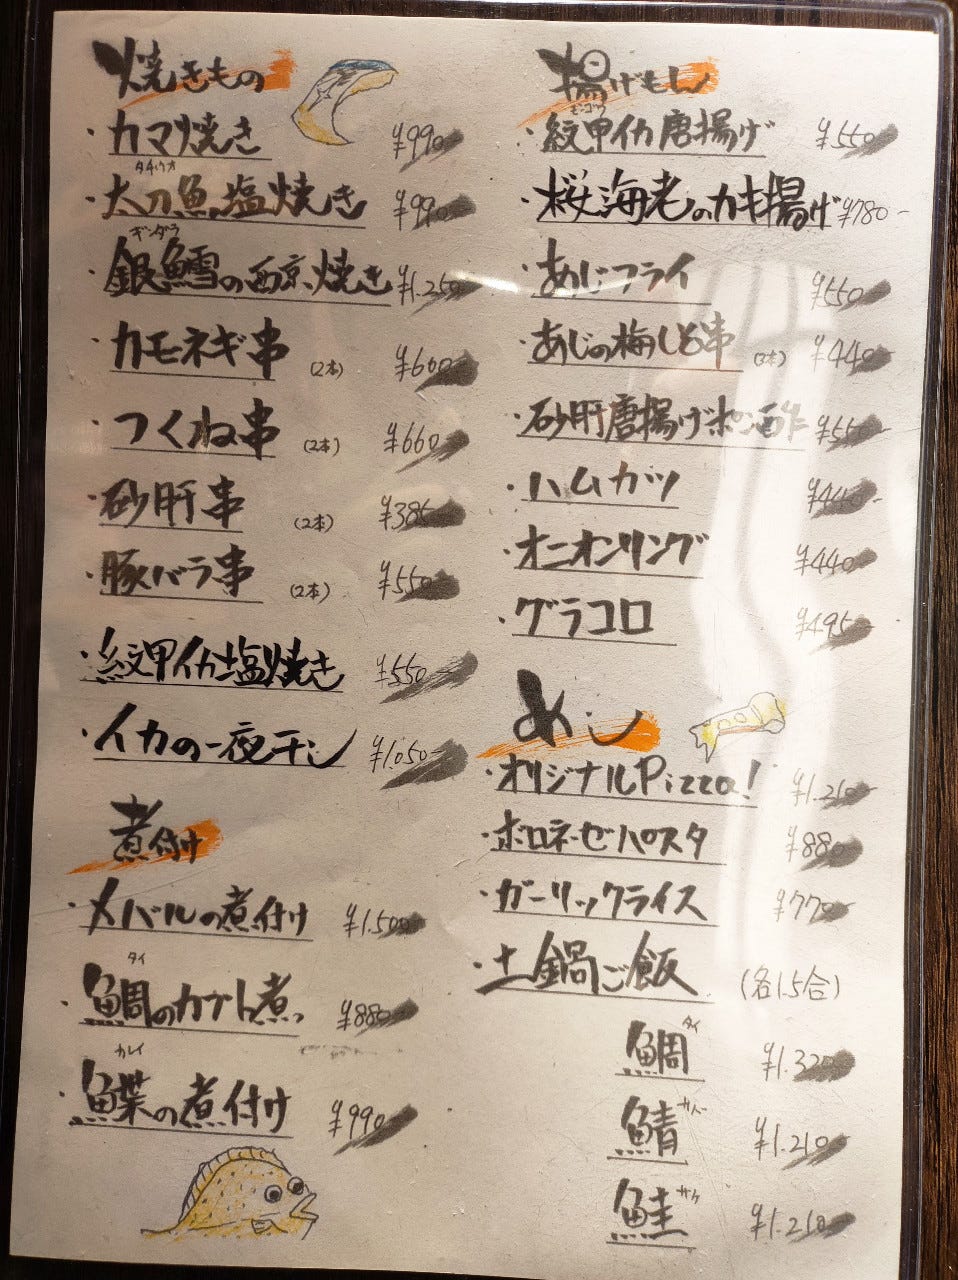 焼きもの
・カマ焼き ¥990-
タチウオ
・太刀魚塩焼き ¥990-
ギンダラ
・銀鱈の西京焼き ¥1.250-
・カモネギ串 (2本) ¥600-
・つくね串 (2本) ¥660-
・砂肝串 (2本) ¥385-
・豚バラ串 (2本) ¥550-
・紋甲イカ塩焼き ¥550-
・イカの一夜干し ¥1.050-
煮付け
・メバルの煮付け ¥1.500-
タイ
・鯛のカブト煮 ¥880-
カレイ
・鰈の煮付け ¥990-
揚げもの
モンゴウ
・紋甲イカ唐揚げ ¥550-
・桜海老のカキ揚げ ¥780-
・あじフライ ¥550-
・あじの梅しそ串 (3本) ¥440-
・砂肝唐揚げポン酢 ¥550-
・ハムカツ ¥440-
・オニオンリング ¥440-
・グラコロ ¥495-
めし
・オリジナルPizza! ¥1.210-
・ボロネーゼパスタ ¥880-
・ガーリックライス ¥770-
・土鍋ご飯 (各1.5合)
タイ
鯛 ¥1.320-
サバ
鯖 ¥1.210-
サケ
鮭 ¥1.210-